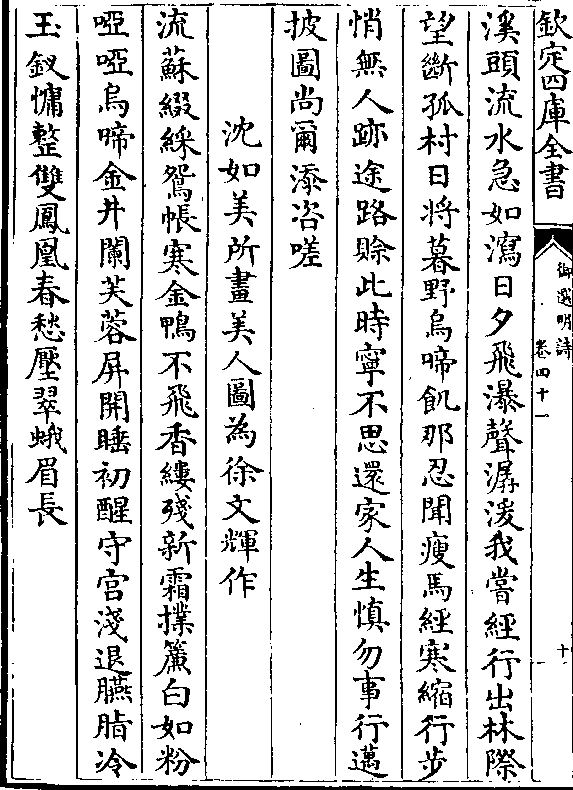 欽定四庫全書
御選明詩
卷四十一
十一
溪頭流水急如瀉日夕飛瀑聲潺湲我嘗經行出林際
望斷孤村日將暮野烏啼飢那忍聞瘦馬經寒縮行步
悄無人跡途路賒此時寧不思還家人生慎勿事行邁
披圖尚爾添咨嗟
沈如美所畫美人圖為徐文輝作
流蘇綴綵鴛帳寒金鴨不飛香縷殘新霜撲簾白如粉
啞啞烏啼金井闌芙蓉屏開睡初醒守宮淺退臙脂冷
玉釵慵整雙鳳凰春愁壓翠蛾眉長